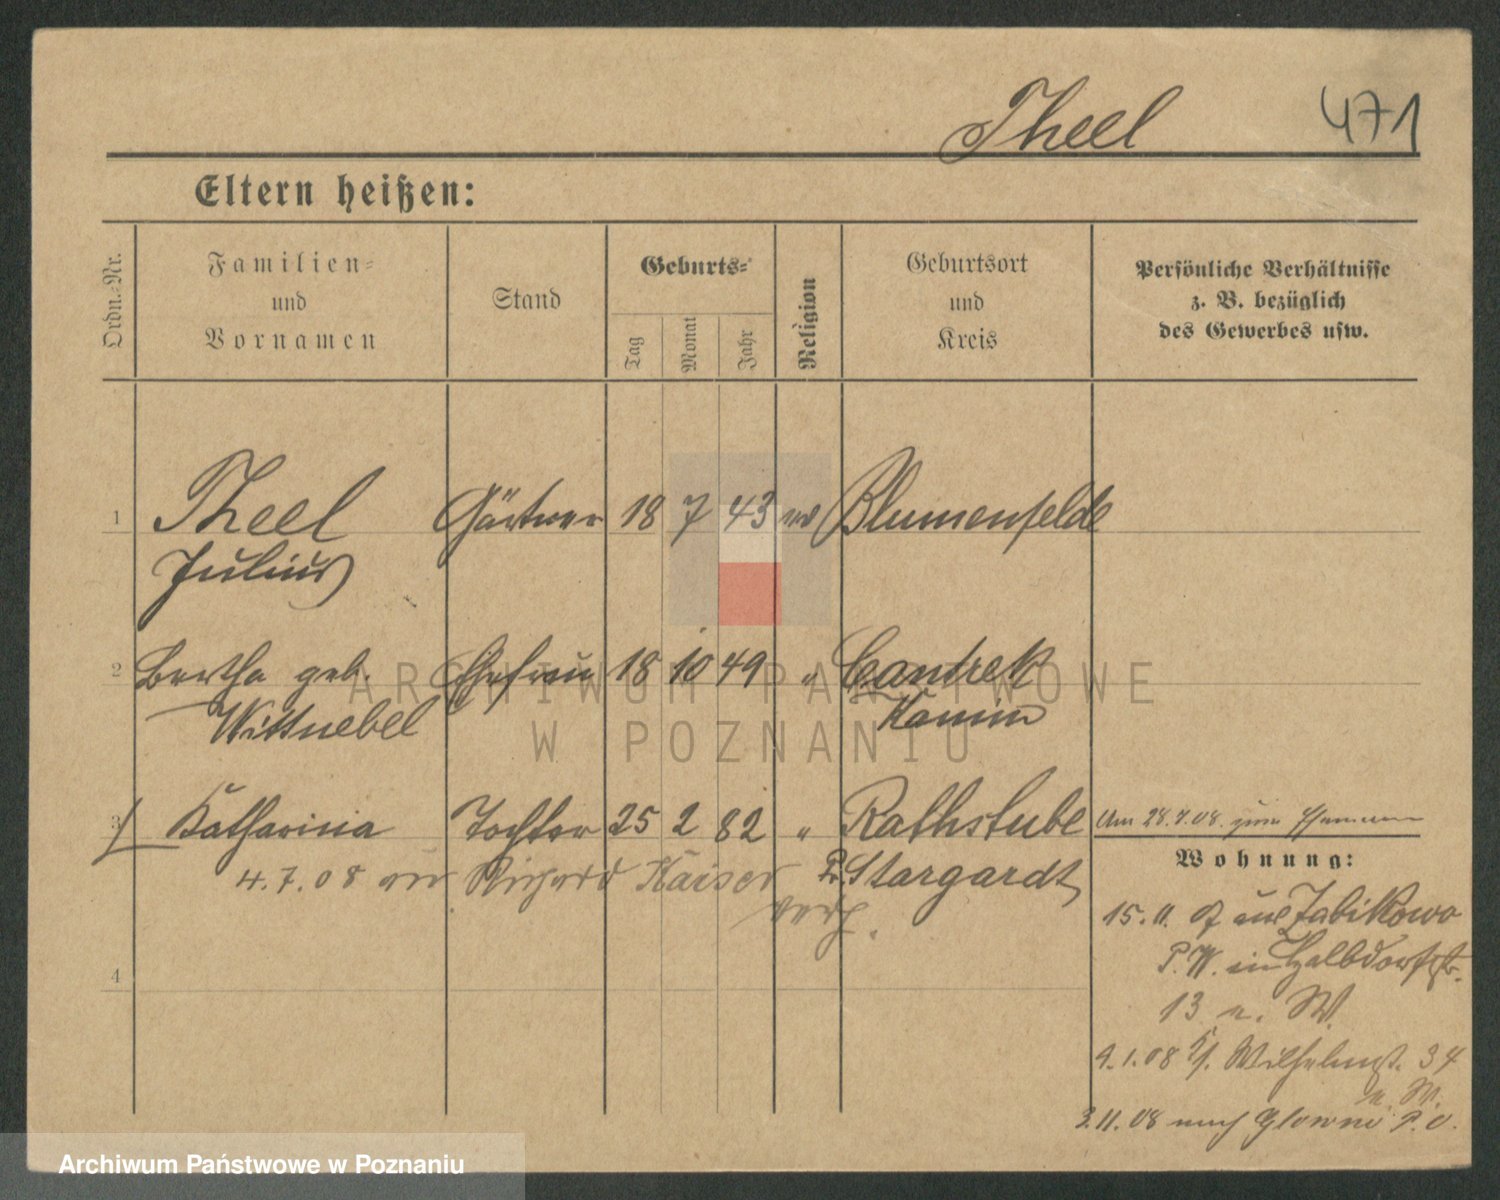 Theel 471
Eltern heißen:
Ordn.-Nr.
Familien-
und
Vornamen
Stand
Geburts-
Tag
Monat
Jahr
Religion
Geburtsort
und
Kreis
Persönliche Verhältnisse
z. B. bezüglich
des Gewerbes usw.
1 Theel Gärtner 18 7 43 ev Blumenfelde
Julius
2 Bertha geb. Ehefrau 18 10 49 " Cantrek
Wittnebel Kamin
3 Katharina Tochter 25 2 82 " Rathstube Am 28.7.08. zum
4.7.08 an Richard Kaiser Pr. Stargardt
verh.
Wohnung:
15.11. 07 aus Zabikowo
P.W. in Halbdorfstr.
13 n. W.
4
9.1.08 Wilhelmst. 34
n. W.
3.11.08 nach Glowno P.O.
ARCHIWUM PAŃSTWOWE
W POZNANIU
Archiwum Państwowe w Poznaniu